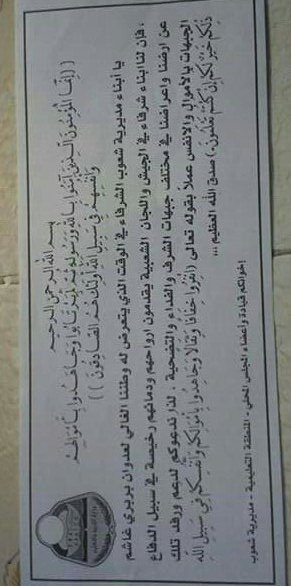 بسم الله الرحمن الرحيم
(( إِنَّمَا الْمُؤْمِنُونَ الَّذِينَ آمَنُوا بِاللَّهِ وَرَسُولِهِ ثُمَّ لَمْ يَرْتَابُوا وَجَاهَدُوا بِأَمْوَالِهِمْ
وَأَنفُسِهِمْ فِي سَبِيلِ اللَّهِ أُولَئِكَ هُمُ الصَّادِقُونَ ))
يا أبناء مديرية شعوب الشرفاء في الوقت الذي يتعرض له وطننا الغالي لعدوان بربري غاشم
، فإن لنا ابناء شرفاء في الجيش واللجان الشعبية يقدمون ارواحهم ودمائهم رخيصة في سبيل الدفاع
عن ارضنا واعراضنا في مختلف جبهات الشرف والفداء والتضحية ، لذا ندعوكم لدعم ورفد تلك
الجبهات بالأموال والانفس عملاً بقوله تعالى (انْفِرُوا خِفَافًا وَثِقَالًا وَجَاهِدُوا بِأَمْوَالِكُمْ وَأَنْفُسِكُمْ فِي سَبِيلِ اللَّهِ
ذَلِكُمْ خَيْرٌ لَكُمْ إِنْ كُنْتُمْ تَعْلَمُونَ) صدق الله العظيم ...
إخوانكم قيادة وأعضاء المجلس المحلي - المنطقة التعليمية - مديرية شعوب